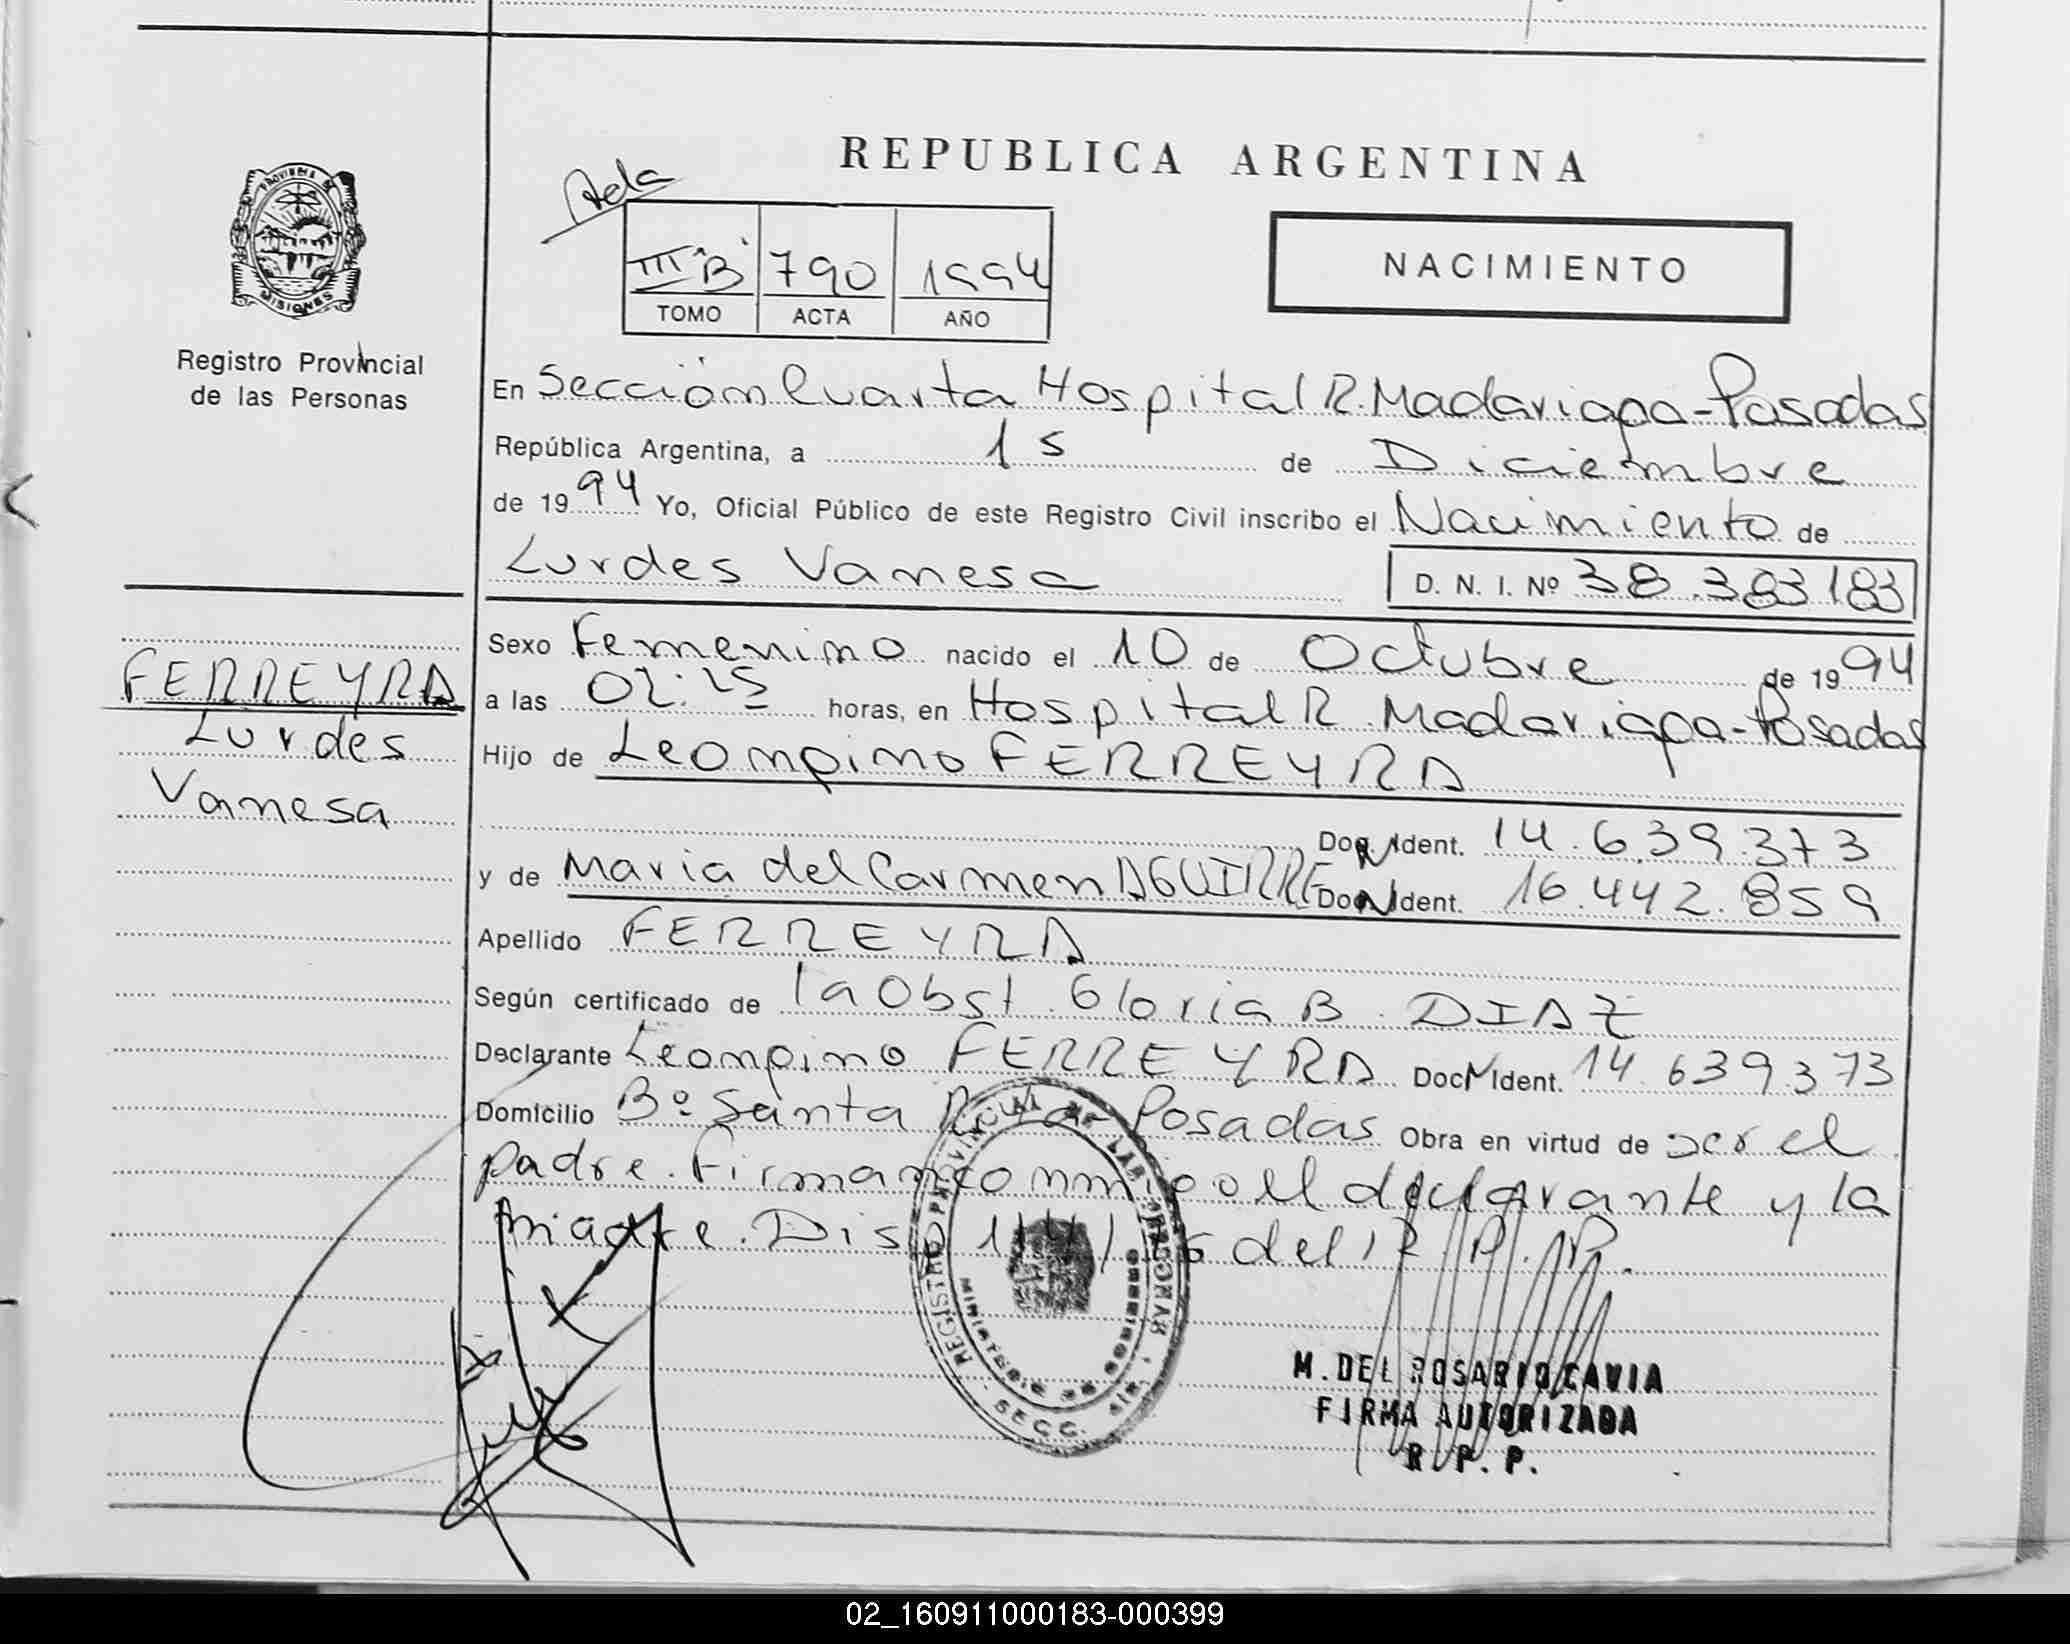 REPUBLICA ARGENTINA
Adela
III "B" 790 1994
TOMO ACTA AÑO
NACIMIENTO
PROVINCIA DE
MISIONES
Registro Provincial
de las Personas
En Sección Cuarta Hospital R. Madariaga - Posadas
República Argentina, a 15 de Diciembre
de 1994 Yo, Oficial Público de este Registro Civil inscribo el Nacimiento de
Lurdes Vanesa D. N. I. Nº 38.383183
Sexo Femenino nacido el 10 de Octubre de 1994
a las 02:25 horas, en Hospital R. Madariaga - Posadas
Hijo de Leongino FERREYRA
Doc. Ident. 14.639.373
y de Maria del Carmen AGUIRRE Doc. Ident. 16.442.859
Apellido FERREYRA
Según certificado de la Obst. Gloria B. DIAZ
Declarante Leongino FERREYRA Doc. Ident. 14.639.373
Domicilio Bº Santa Rita - Posadas Obra en virtud de ser el
padre. Firman conmigo el declarante y la
madre. Disp. del R. P. P.
FERREYRA
Lurdes
Vanesa
REGISTRO PROVINCIAL DE LAS PERSONAS
MINISTERIO DE GOBIERNO
SECC. 4
M. DEL ROSARIO CAVIA
FIRMA AUTORIZADA
R. P. P.
02_160911000183-000399